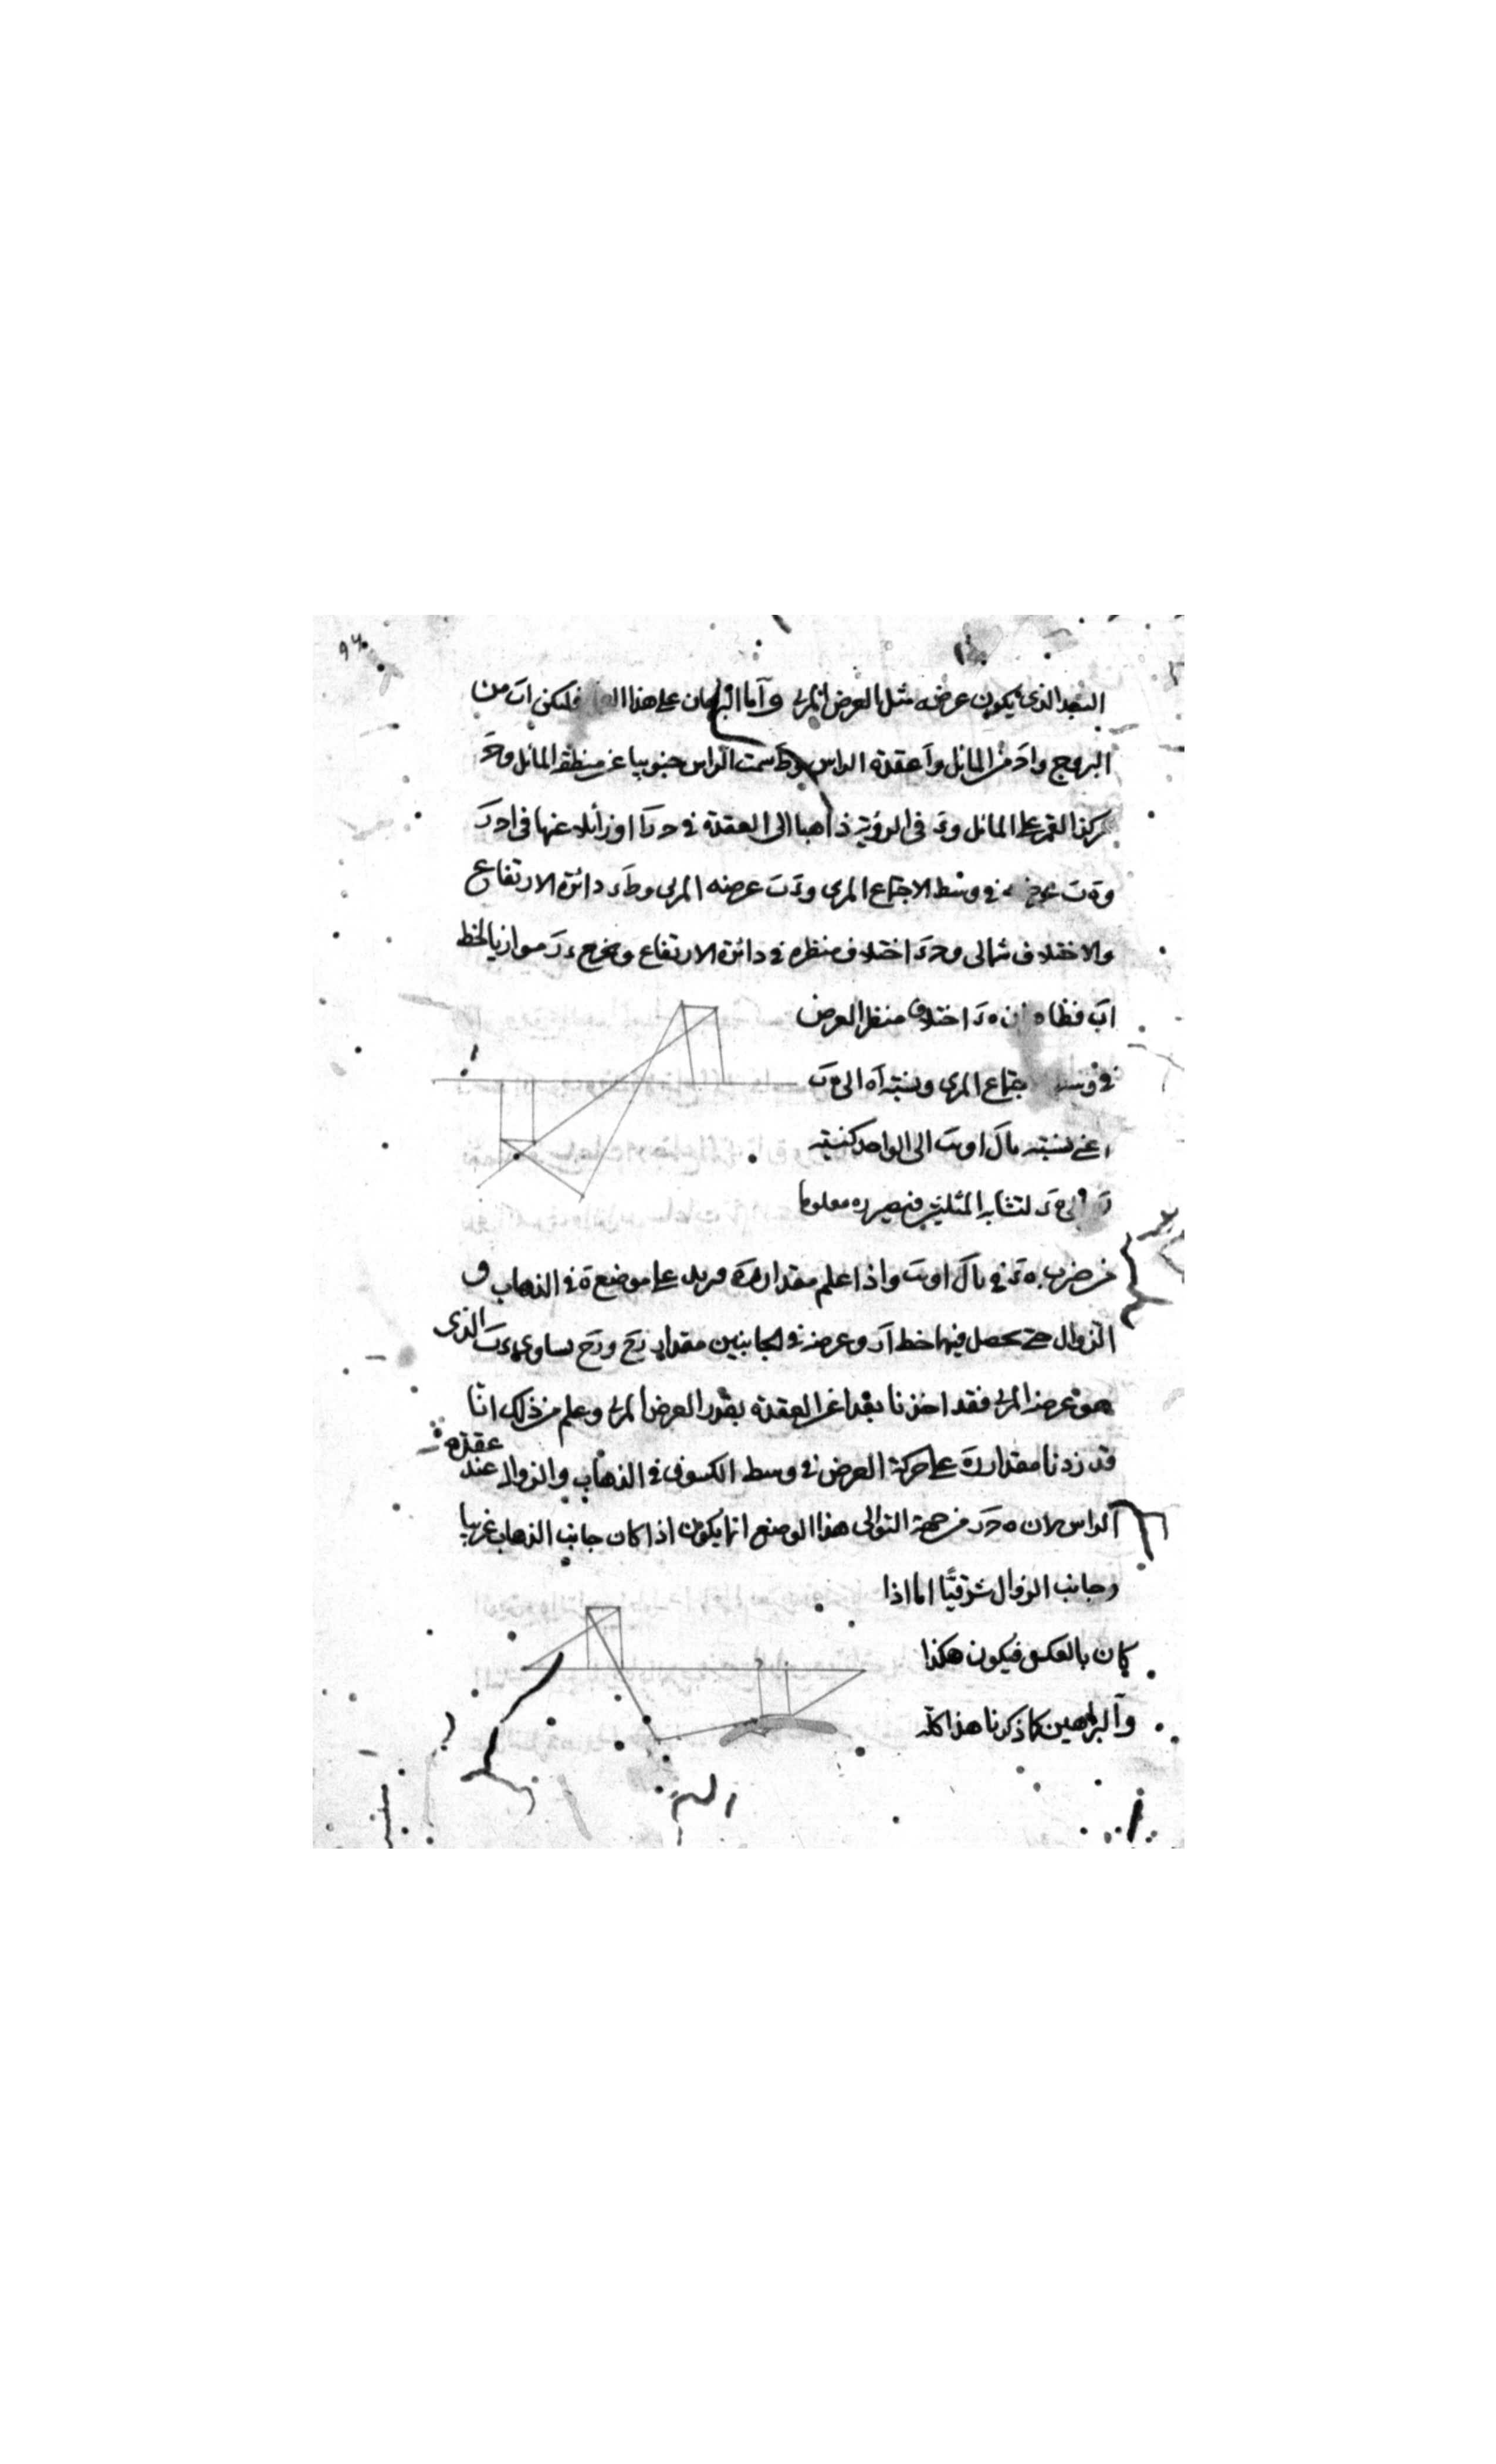 البعد الذى يكون عرضه مثل العرض المرى وآما البرهان على هذا فليكن اب من
البروج واد من المائل وآ عقدة الراس وط سمت الراس جنوبيا عن منطقة المائل وح
مركز القمر على المائل وء فى الرؤية ذاهبا الى العقدة فى ح د ا او زائلا عنها فى ا ح د
وه ب عرضه فى وسط الاجتماع المرى وء ب عرضه المرى وط ء دائرة الارتفاع
والاختلاف شمالى وح ء اختلاف منظره فى دائرة الارتفاع ونخرج ء د موازيا لخط
اب فظاهر ان ه ء اختلاف منظر العرض
فى وسط الاجتماع المرى ونسبة آه الى ه ب
اعنى نسبة يا ل او ب الى الواحد كنسبة
الى ه ء لتشابه المثلثين فيصير ده معلوما
من ضرب ه ء فى يا ل او ب واذا علم مقدار ده فزيد على موضع ه فى الذهاب و
الزوال حتى يحصل فيهما خط آد وعرضه فى الجانبين مقدار دح ودح يساوى ء ب الذى
هو عرضه المرى فقد اخذنا بعدا عن العقدة بقدر العرض المرى وعلم من ذلك انا
قد زدنا مقدار ده على حركة العرض فى وسط الكسوف فى الذهاب والزوال عند عقدة
الراس لان ه ح د من جهة التوالى هذا الوضع انما يكون اذا كان جانب الذهاب غربيا
وجانب الزوال شرقيًا اما اذا
كان بالعكس فيكون هكذا
وآلبراهين كما ذكرنا هذا كله